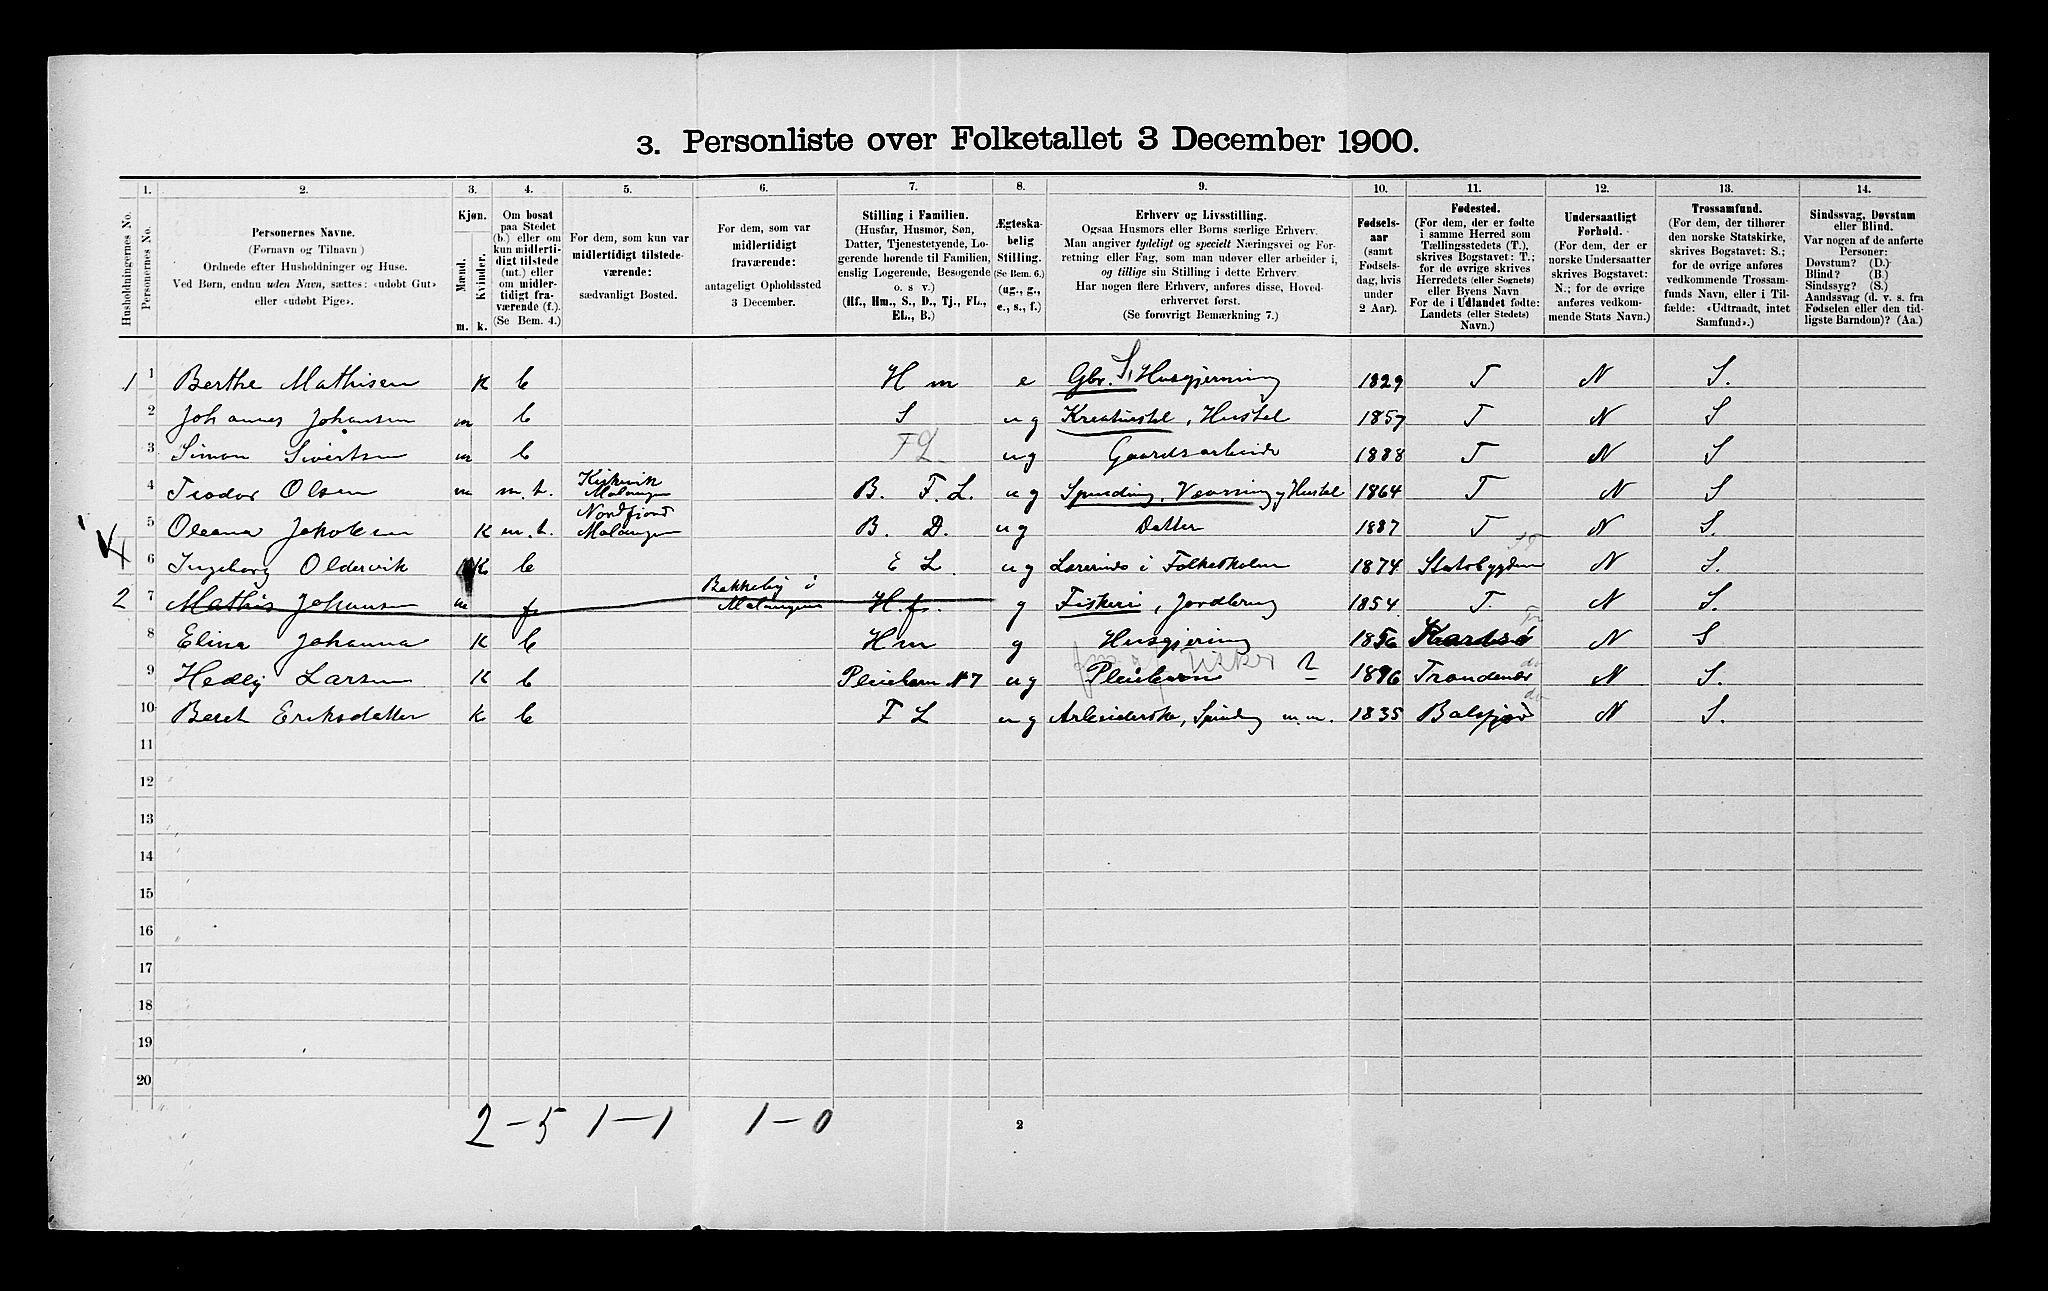 3. Personliste over Folketallet 3 December 1900.
1. 2. 3. 4. 5. 6. 7. 8. 9. 10. 11. 12. 13. 14.
Husholdningernes No.
Personernes No.
Personernes Navne.
(Fornavn og Tilnavn)
Ordnede efter Husholdninger og Huse.
Ved Børn, endnu uden Navn, sættes: «udøbt Gut»
eller «udøbt Pige».
Kjøn.
Mænd.
Kvinder.
m. k.
Om bosat
paa Stedet
(b.) eller om
kun midlerti-
digt tilstede
(mt.) eller
om midler-
tidigt fra-
værende (f.).
(Se Bem. 4.)
For dem, som kun var
midlertidigt tilstede-
værende:
sædvanligt Bosted.
For dem, som var
midlertidigt
fraværende:
antageligt Opholdssted
3 December.
Stilling i Familien.
(Husfar, Husmor, Søn,
Datter, Tjenestetyende, Lo-
gerende hørende til Familien,
enslig Logerende, Besøgende
o. s v.)
(Hf., Hm., S., D., Tj., FL.,
EL., B.)
Ægteska-
belig
Stilling.
(Se Bem. 6.)
(ug., g.,
e., s., f.)
Erhverv og Livsstilling.
Ogsaa Husmors eller Børns særlige Erhverv.
Man angiver tydeligt og specielt Næringsvei og For-
retning eller Fag, som man udøver eller arbeider i,
og tillige sin Stilling i dette Erhverv.
Har nogen flere Erhverv, anføres disse, Hoved-
erhvervet først.
(Se forøvrigt Bemærkning 7.)
Fødsels-
aar
(samt
Fødsels-
dag, hvis
under
2 Aar).
Fødested.
(For dem, der er fødte
i samme Herred som
Tællingsstedets (T.),
skrives Bogstavet: T.;
for de øvrige skrives
Herredets (eller Sognets)
eller Byens Navn
For de i Udlandet fødte:
Landets (eller Stedets)
Navn.)
Undersaatligt
Forhold.
(For dem, der er
norske Undersaatter
skrives Bogstavet:
N.; for de øvrige
anføres vedkom-
mende Stats Navn.)
Trossamfund.
(For dem, der tilhører
den norske Statskirke,
skrives Bogstavet: S.;
for de øvrige anføres
vedkommende Trossam-
funds Navn, eller i Til-
fælde: «Udtraadt, intet
Samfund».)
Sindssvag, Døvstum
eller Blind.
Var nogen af de anførte
Personer:
Døvstum? (D.)
Blind? (B.)
Sindssyg? (S.)
Aandssvag (d. v. s. fra
Fødselen eller den tid-
ligste Barndom)? (Aa.)
1 1 Berthe Mathisen K b Hm e Gbr. S, Husgjerning 1829 T N S.
2 Johannes Johansen m b S ug Kreaturstel, Hustel 1857 T N S
3 Simon Sivertsen m b FL ug Gaardsarbeide 1888 T N S
4 Teodor Olsen m m.t. Kirkevik Malangen B. F.L. ug Spinding, Vævning og Hustel 1864 T N S
5 Oleana Jakobsen K m.t. Nordfjord Malangen B. D. ug Datter 1887 T N S.
6 Ingeborg Oldervik K b E L. ug Lærerinde i Folkeskolen 1874 Statsbygden N S.
2 7 Mathis Johansen m f Bakkeby i Malangen H.f. g Fiskeri, Jordbrug 1854 T. N S.
8 Elina Johanna K b Hm g Husgjerning 1856 N S
9 Hedvig Larsen K b Pleiebarn N 7 ug Pleiebarn 2 1896 Trondenæs do N S.
10 Beret Eriksdatter K b F L ug Arbeiderske, Spinding m.m. 1835 Balsfjord do N S.
11
12
13
14
15
16
17
18
19
20
2-5 1-1 1-0
2